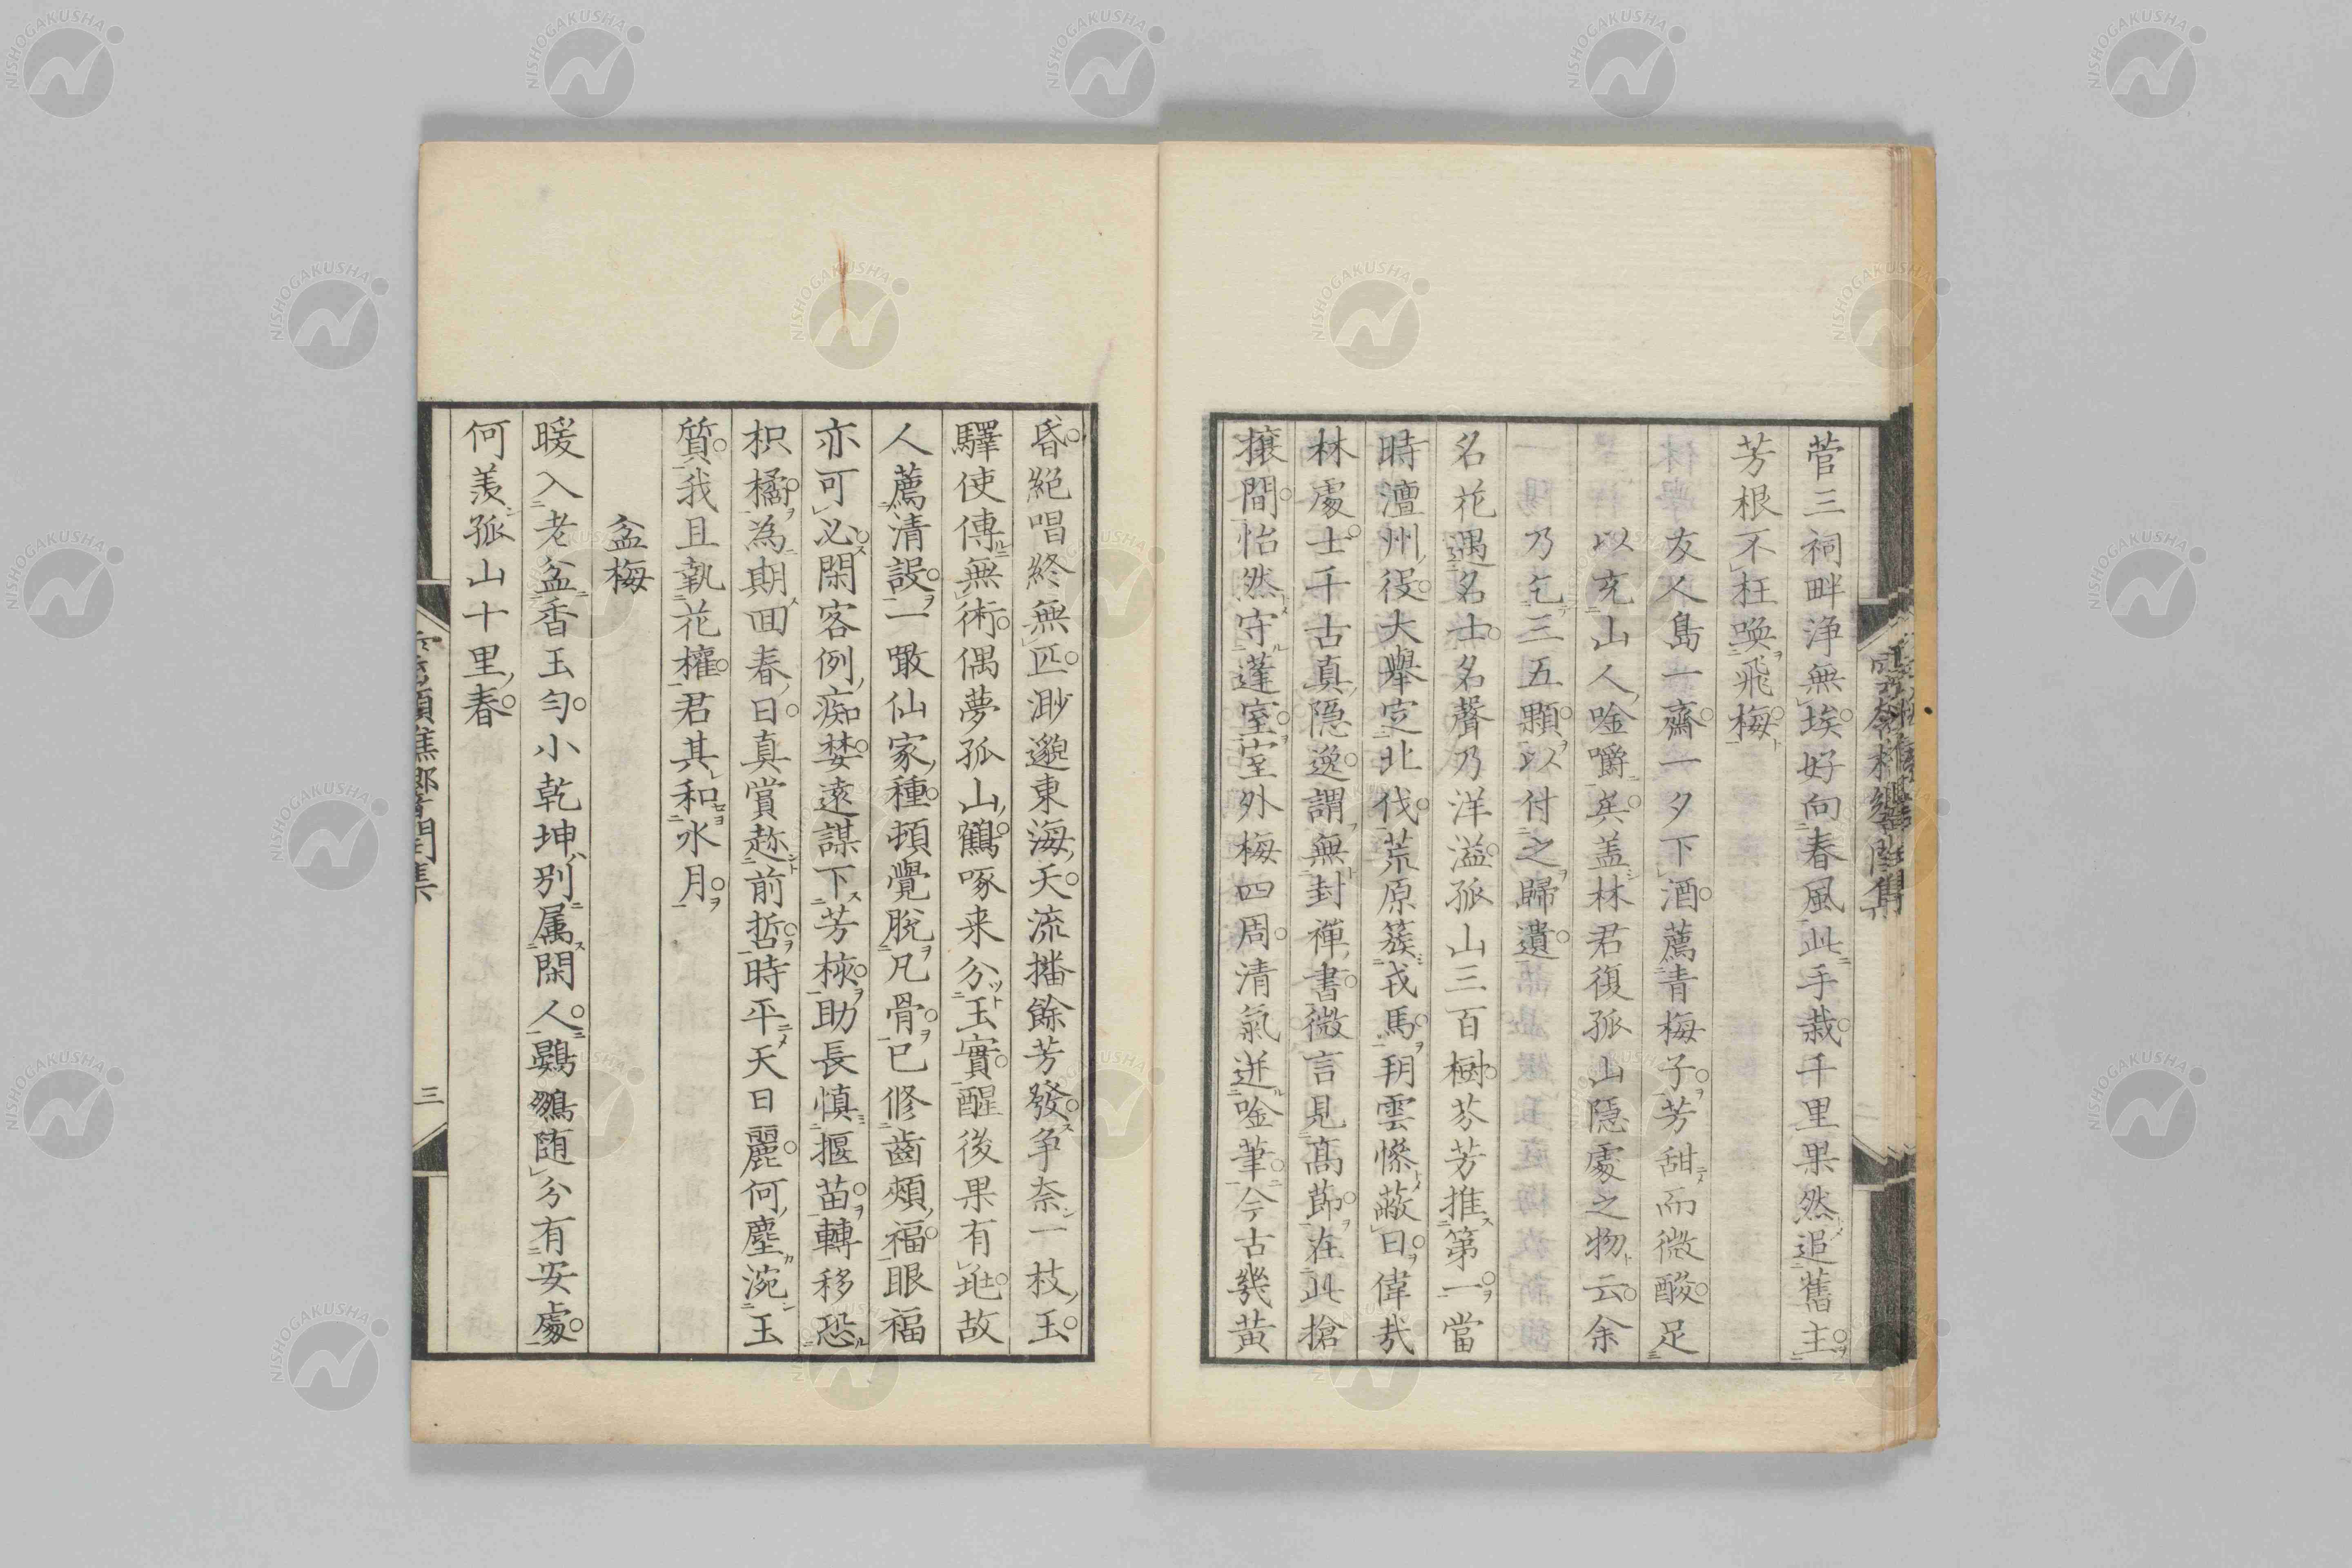 菅三祠畔浄無埃好向春風此手栽千里果然追舊主
芳根不枉喚飛梅
友人島一齋一夕下酒薦青梅子芳甜而微酸足
以充山人唫嚼矣盖林君復孤山隠處之物云余
乃乞三五顆以付之歸遺
名花遇名士名聲乃洋溢孤山三百樹芬芳推第一當
時澶州役大舉定北伐荒原簇戎馬玥雲慘蔽日偉㢤
林處士千古真隠逸謂無封禅書微言見高節在此搶
攘間怡然守蓬室室外梅四周清氣迸唫筆今古幾黄
昏絕唱終無匹渺邈東海天流播餘芳發争奈一枝玉
驛使傳無術偶夢孤山鶴啄来分玉實醒後果有𡉏故
人薦清設一噉仙家種頓覺脱凡骨已修齒頰福眼福
亦可必閑客例痴婪遠謀下芳核助長慎揠苗轉移恐
枳橘為期囬春日真賞趂前哲時平天日麗何塵涴玉
質我且執花權君其和水月
盆梅
暖入老盆香玉勻小乾坤別属閑人鷃鷯随分有安處
何羨孤山十里春
三